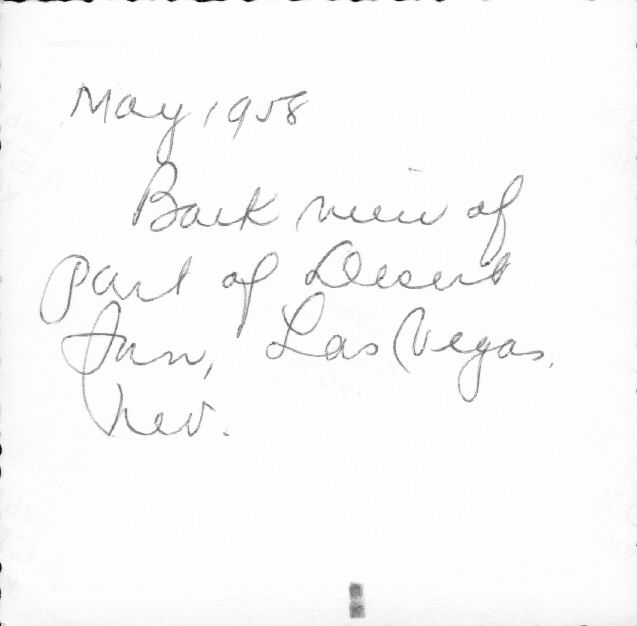 May, 1958
Back view of
part of Desert
Inn, Las Vegas,
Nev.